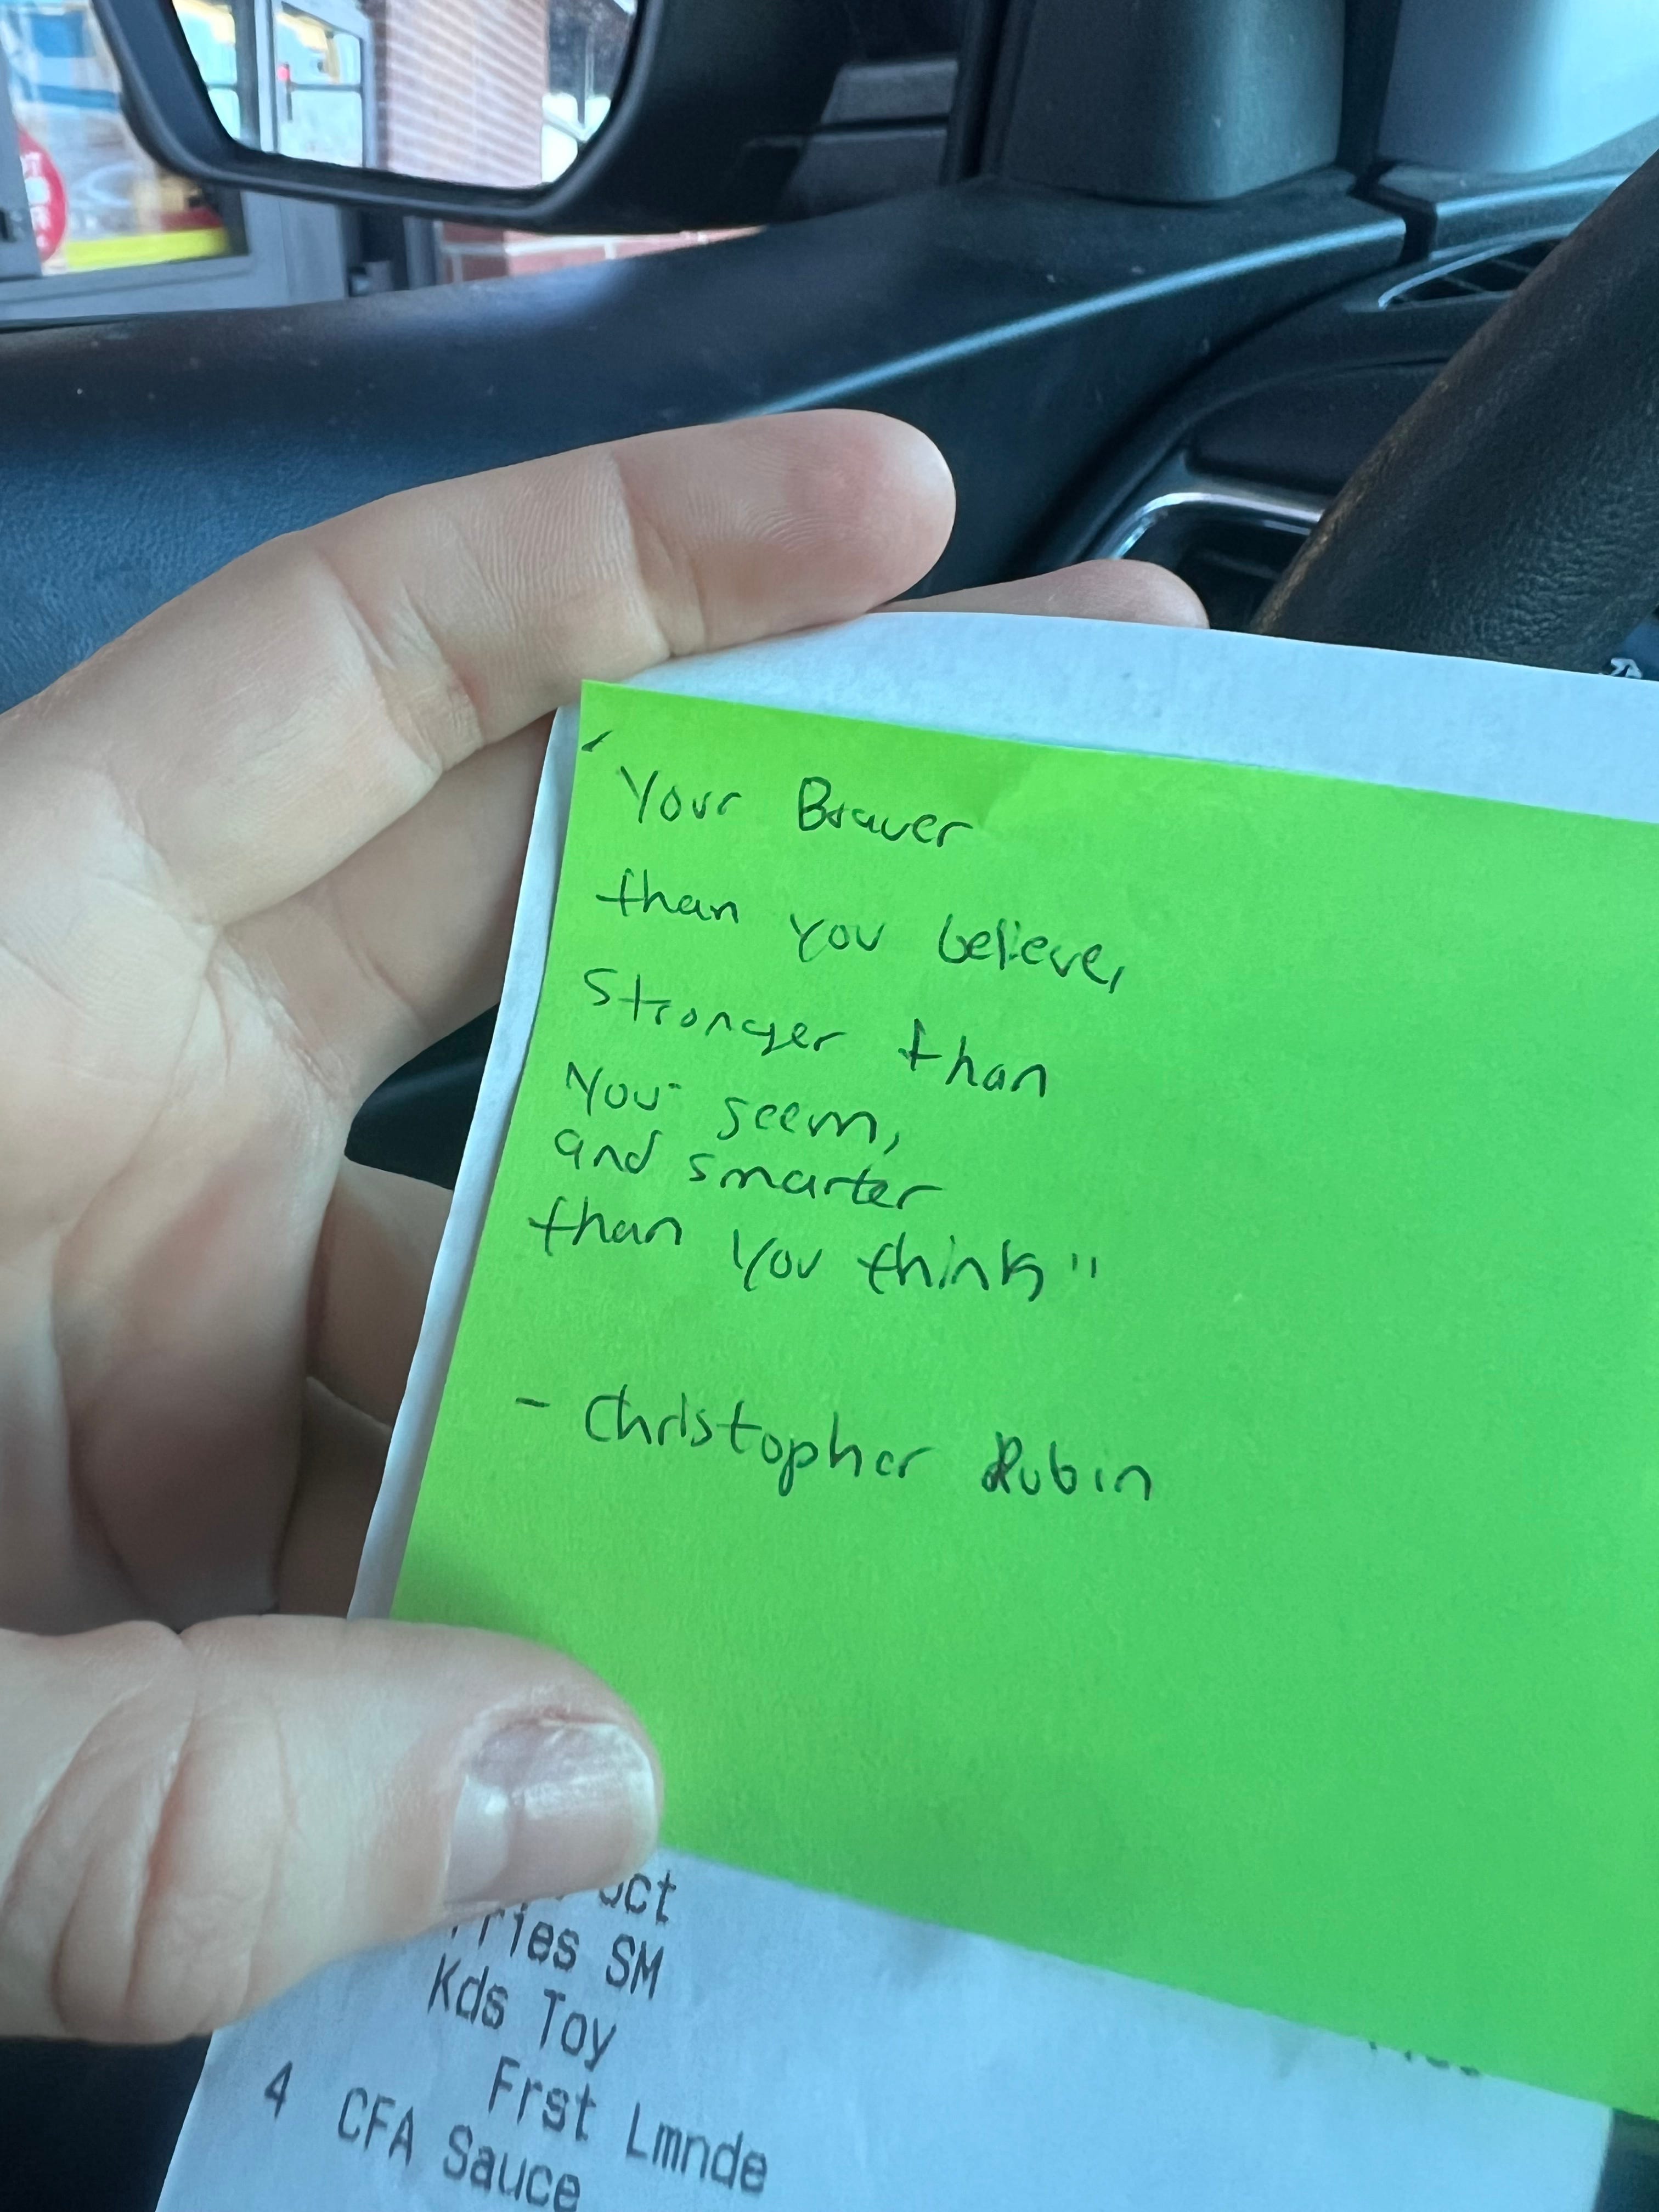 Your Braver
than you believe,
Stronger than
You seem,
and smarter
than You think"
- Christopher Rubin
Fries SM
Kds Toy
Frst Lmnde
4 CFA Sauce